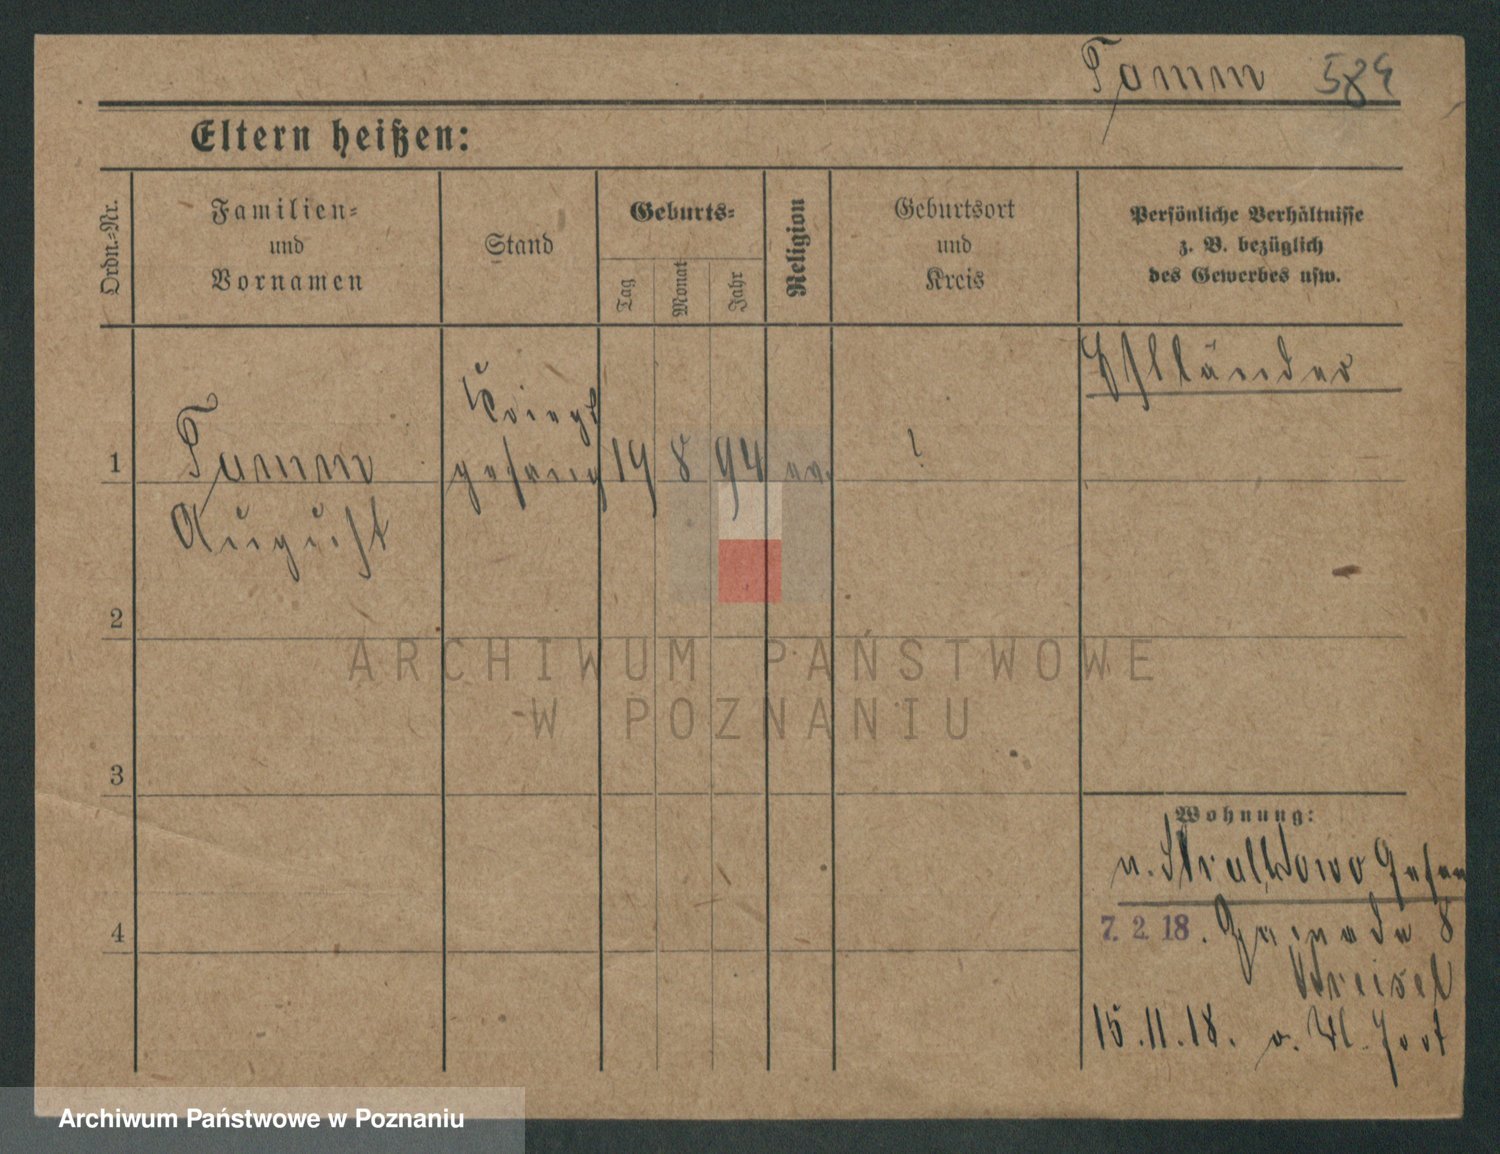 Tamm 584
Eltern heißen:
Ordn.-Nr.
Familien-
und
Vornamen
Stand
Geburts-
Tag
Monat
Jahr
Religion
Geburtsort
und
Kreis
Persönliche Verhältnisse
z. B. bezüglich
des Gewerbes usw.
Estländer
Kriegs
gefang
1 Tamm 19 8 94 ev. ?
August
2
3
4
Wohnung:
v. Stralkowo Gefan
7. 2. 18. Grenade 8
Kreisel
15.11.18. v. fort
ARCHIWUM PAŃSTWOWE
W POZNANIU
Archiwum Państwowe w Poznaniu